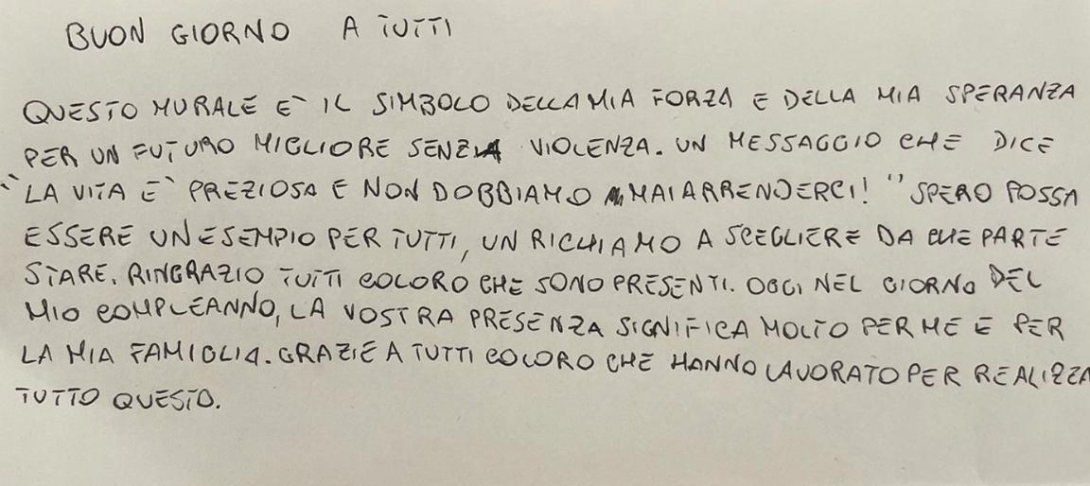 BUON GIORNO A TUTTI
QUESTO MURALE E` IL SIMBOLO DELLA MIA FORZA E DELLA MIA SPERANZA
PER UN FUTURO MIGLIORE SENZA VIOLENZA. UN MESSAGGIO CHE DICE
"LA VITA E` PREZIOSA E NON DOBBIAMO MAI ARRENDERCI!" SPERO POSSA
ESSERE UN ESEMPIO PER TUTTI, UN RICHIAMO A SCEGLIERE DA CHE PARTE
STARE. RINGRAZIO TUTTI COLORO CHE SONO PRESENTI. OGGI NEL GIORNO DEL
MIO COMPLEANNO, LA VOSTRA PRESENZA SIGNIFICA MOLTO PER ME E PER
LA MIA FAMIGLIA. GRAZIE A TUTTI COLORO CHE HANNO LAVORATO PER REALIZZA
TUTTO QUESTO.